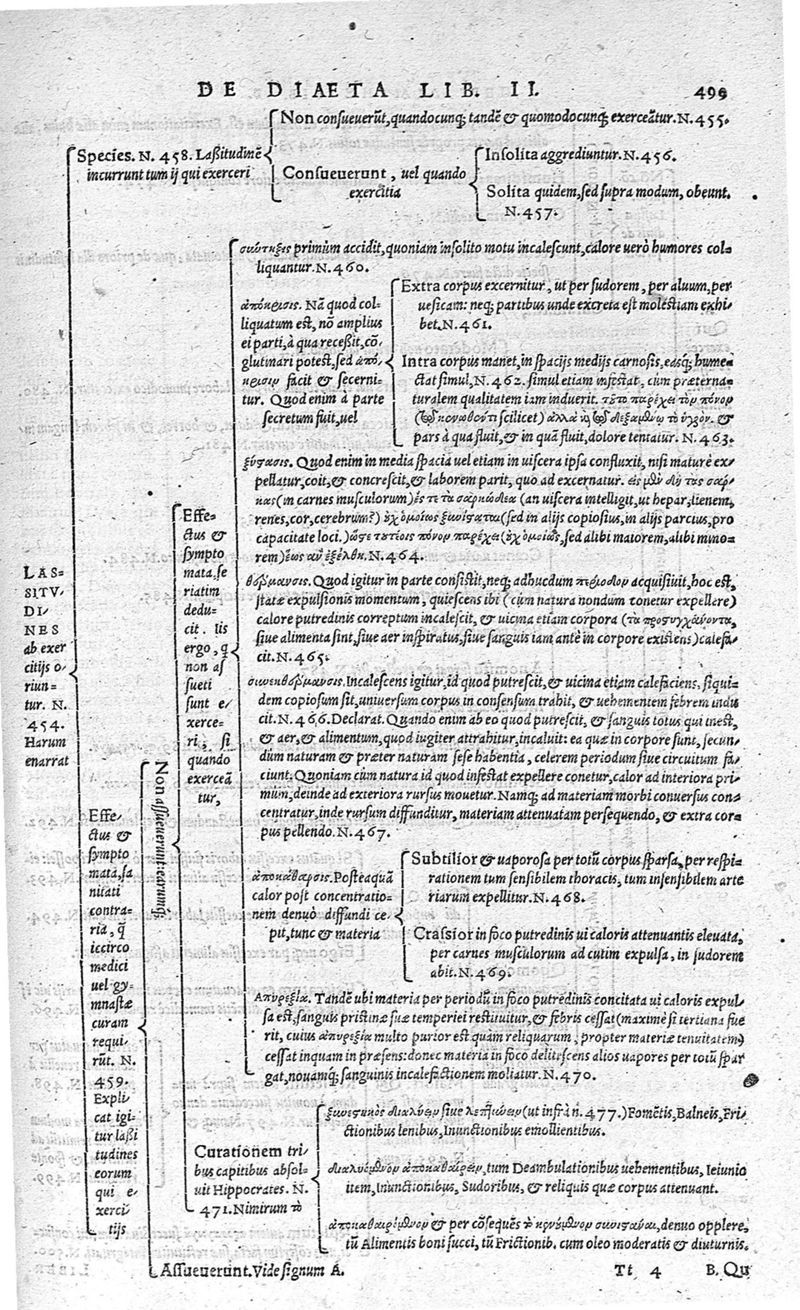 DE DIAETA LIB. II. 499
LAS=
SITV=
DI=
NES
ab exer
citijs o=
riun=
tur. N.
454.
Harum
enarrat
Species. N. 458. Laßitudinẽ
incurrunt tum ij qui exerceri
Non consueuerũt, quandocunq; tandẽ & quomodocunq; exerceãtur. N. 455.
Consueuerunt, uel quando
exercitia
Insolita aggrediuntur. N. 456.
Solita quidem, sed supra modum, obeunt.
N. 457.
Effe=
ctus &
sympto
mata, sa
nitati
contra=
ria, q̃
iccirco
medici
uel gy=
mnastæ
curam
requi=
rũt. N.
459.
Expli=
cat igi=
tur laßi
tudines
eorum
qui e=
xerci
tijs
Non assueuerunt earumq́;
Effe=
ctus &
sympto
mata, se
riatim
dedu=
cit. Iis
ergo, q
non as
sueti
sunt e=
xerce=
ri, si
quando
exerceã
tur,
σύντηξις primùm accidit, quoniam insolito motu incalescunt, calore uerò humores col=
liquantur. N. 460.
ἀπόκρισις. Nã quod col=
liquatum est, nõ amplius
ei parti, à qua receßit, cõ=
glutinari potest, sed ἀπό=
κρισιν facit & secerni=
tur. Quod enim à parte
secretum fuit, uel
Extra corpus excernitur, ut per sudorem, per aluum, per
uesicam: neq; partibus unde excreta est molestiam exhi=
bet. N. 461.
Intra corpus manet, in spacijs medijs carnosis, easq; hume=
ctat simul, N. 462. simul etiam infestat, cùm præterna=
turalem qualitatem iam induerit. τοῦτο παρέχει τὸν πόνον
scilicet) ἀλλὰ τὸ ὑγρόν. &
pars à qua fluit, & in quã fluit, dolore tentatur. N. 463.
ξύστασις. Quod enim in media spacia uel etiam in uiscera ipsa confluxit, nisi maturè ex=
pellatur, coit, & concrescit, & laborem parit, quo ad excernatur. εἰς μὲν δὴ τὰς σάρ=
κας (in carnes musculorum) ἔς τε τὰ σαρκώδεα (an uiscera intelligit, ut hepar, lienem,
renes, cor, cerebrum?) οὐχ ὁμοίως ξυνίσταται (sed in alijs copiosius, in alijs parcius, pro
capacitate loci.) ὥστε τούτοις πόνον παρέχει (οὐχ ὁμοίως, sed alibi maiorem, alibi mino=
rem) ἕως ἂν ἐξέλθῃ. N. 464.
θέρμανσις. Quod igitur in parte consistit, neq; adhuc dum περίοδον acquisiuit, hoc est,
statæ expulsionis momentum, quiescens ibi (cùm natura nondum conetur expellere)
calore putredinis correptum incalescit, & uicina etiam corpora (τὰ προστυγχάνοντα,
siue alimenta sint, siue aer inspiratus, siue sanguis iam antè in corpore existens) calefa=
cit. N. 465.
συνεκθέρμανσις. Incalescens igitur, id quod putrescit, & uicina etiam calefaciens, si qui=
dem copiosum sit, uniuersum corpus in consensum trahit, & uehementem febrem indu
cit. N. 466. Declarat. Quando enim ab eo quod putrescit, & sanguis totus qui inest,
& aer, & alimentum, quod iugiter attrahitur, incaluit: ea quæ in corpore sunt, secun=
dùm naturam & præter naturam sese habentia, celerem periodum siue circuitum fa=
ciunt. Quoniam cùm natura id quod infestat expellere conetur, calor ad interiora pri=
mùm, deinde ad exteriora rursus mouetur. Namq; ad materiam morbi conuersus con=
centratur, inde rursum diffunditur, materiam attenuatam persequendo, & extra cor=
pus pellendo. N. 467.
ἀποκάθαρσις. Posteaquã
calor post concentratio=
nem denuò diffundi cœ=
pit, tunc & materia
Subtilior & uaporosa per totũ corpus sparsa, per respi=
rationem tum sensibilem thoracis, tum insensibilem arte
riarum expellitur. N. 468.
Crassior in foco putredinis ui caloris attenuantis eleuata,
per carnes musculorum ad cutim expulsa, in sudorem
abit. N. 469.
Απυρεξία. Tandẽ ubi materia per periodũ in foco putredinis concitata ui caloris expul=
sa est, sanguis pristinæ suæ temperiei restituitur, & febris cessat (maximè si tertiana fue
rit, cuius ἀπυρεξία multo purior est quàm reliquarum, propter materiæ tenuitatem)
cessat inquam in præsens: donec materia in foco delitescens alios uapores per totũ spar
gat, nouamq; sanguinis incalefactionem moliatur. N. 470.
Curationem tri=
bus capitibus absol=
uit Hippocrates. N.
471. Nimirum τὸ
ξυνεστηκὸς διαλύειν siue λεπτύνειν (ut infrà n. 477.) Fomẽtis, Balneis, Fri=
ctionibus lenibus, Inunctionibus emollientibus.
διαλυόμενον ἀποκαθαίρειν, tum Deambulationibus uehementibus, Ieiunio
item, Inunctionibus, Sudoribus, & reliquis quæ corpus attenuant.
ἀποκαθαιρόμενον & per cõsequẽs τὸ κενούμενον συνιστάναι, denuo opplere,
tũ Alimentis boni succi, tũ Frictionib. cum oleo moderatis & diuturnis.
Assueuerunt. Vide signum A.
Tt 4 B. Qu